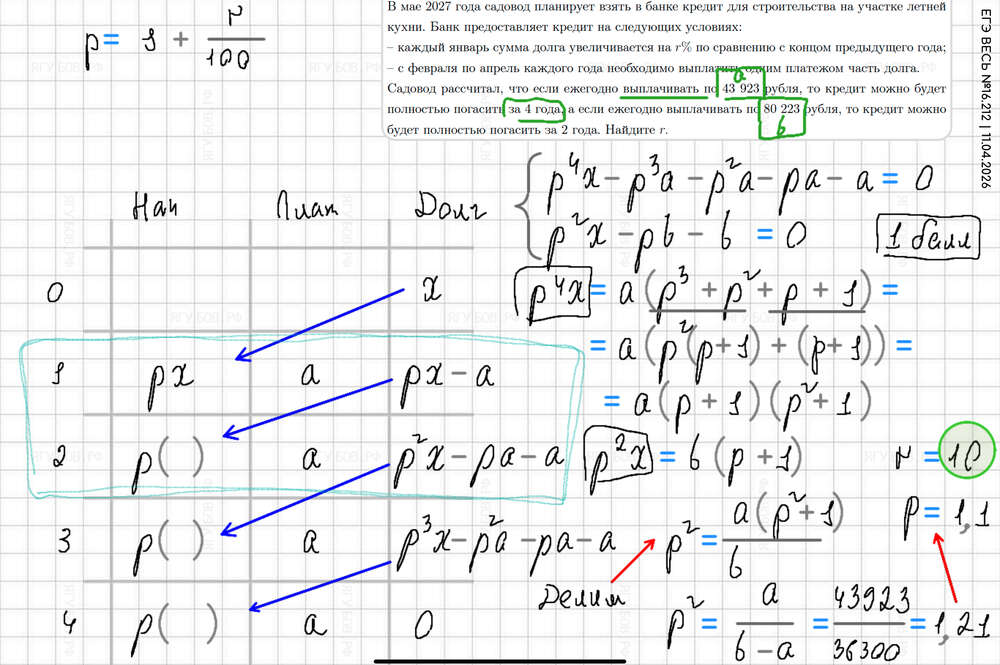 В мае 2027 года садовод планирует взять в банке кредит для строительства на участке летней
кухни. Банк предоставляет кредит на следующих условиях:
– каждый январь сумма долга увеличивается на r% по сравнению с концом предыдущего года;
– с февраля по апрель каждого года необходимо выплатить одним платежом часть долга.
Садовод рассчитал, что если ежегодно выплачивать по 43 923 рубля, то кредит можно будет
полностью погасить за 4 года, а если ежегодно выплачивать по 80 223 рубля, то кредит можно
будет полностью погасить за 2 года. Найдите r.
a
b
ЕГЭ ВЕСЬ №16.212 | 11.04.2026
p = 1 + r/100
Нач Плат Долг
0 x
1 px a px – a
2 p( ) a p²x – pa – a
3 p( ) a p³x – p²a – pa – a
4 p( ) a 0
p⁴x – p³a – p²a – pa – a = 0
p²x – pb – b = 0
1 балл
p⁴x = a(p³ + p² + p + 1) =
= a(p²(p+1) + (p+1)) =
= a(p + 1)(p² + 1)
p²x = b(p + 1)
p² = a(p² + 1)/b
Делим
p² = a/(b – a) = 43923/36300 = 1,21
p = 1,1
r = 10
ЯГУБОВ.РФ